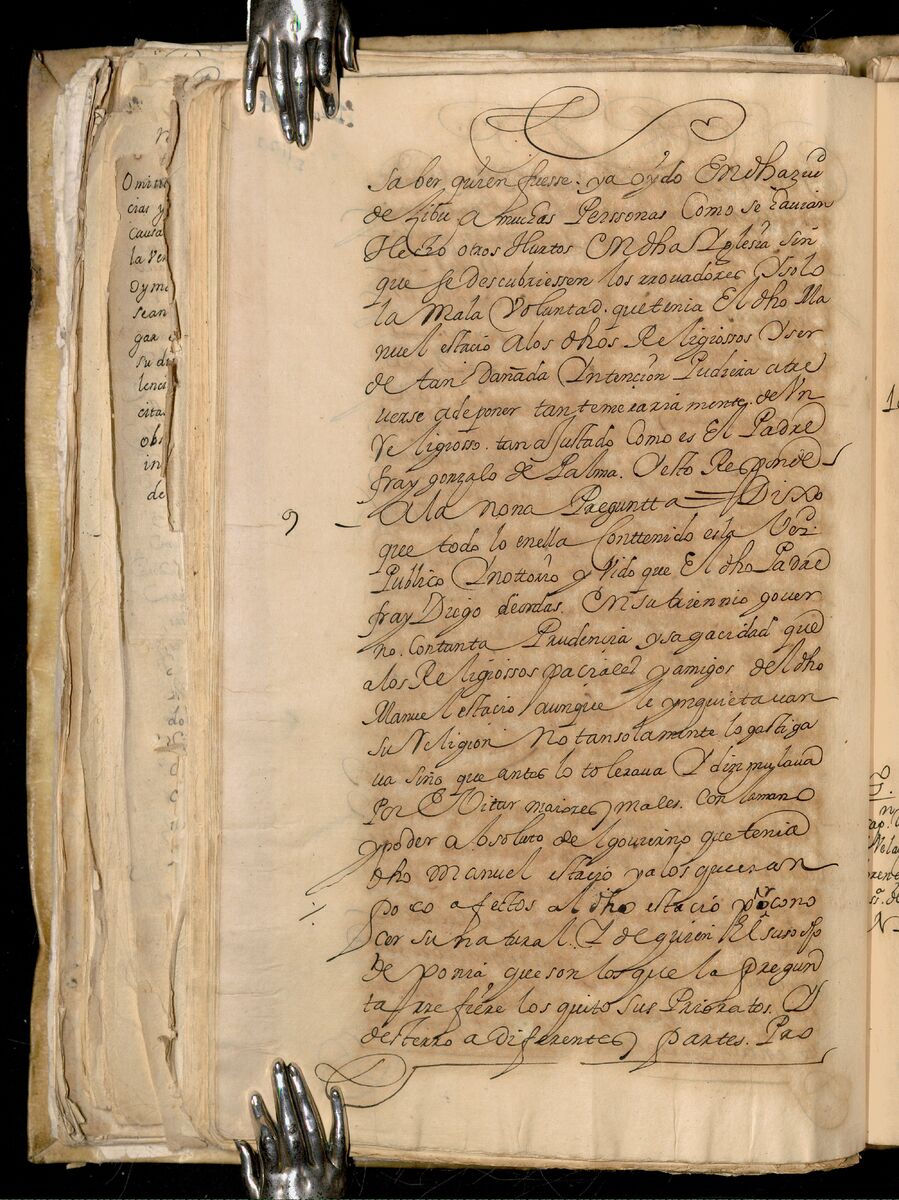 saber quien fuesse. ya oydo En dha ziud
de Zibu a muchas Perssonas Como se hauian
Hecho otros Hurtos En dha Yglesia sin
que se descubriessen los rrouadores Y solo
la mala Voluntad. que tenia El dho Ma
nuel estacio a los dhos Religiossos Y ser
de tan Dañada Yntencion Pudiera atre
uerse a deponer tan temerariamente. de Vn
Religiosso. tan a Justado Como es El Padre
fray gonzalo de Palma. Y esto Responde
9 A la nona Preguntta = Dixo
que todo lo en ella Conttenido es la Verd.
Publico Y nottorio y Vido que El dho Padre
fray Diego de ordas. En su triennio gouer
no. Con tanta Prudencia y sagacidad que
a los Religiossos paciales y amigos del dho
Manuel estacio aunque le ynquietauan
su Religion No tan solamente lo castiga
ua sino que antes lo toleraua Y dizimulaua
Por Evitar maiores males. Con la mano
y poder absoluto del gouierno que tenia
dho Manuel estacio y a los que eran
poco afectos al dho estacio por cono
cer su natural. Y de quien El suso dho
de ponia que son los que la pregun
ta rrefiere los quito sus Prioratos. Y
desterro a diferentes partes. Pro
Omitie
cias y
causa
la Ven
Oyme
sean
gar
su di
lenci
cita
obs
in
de